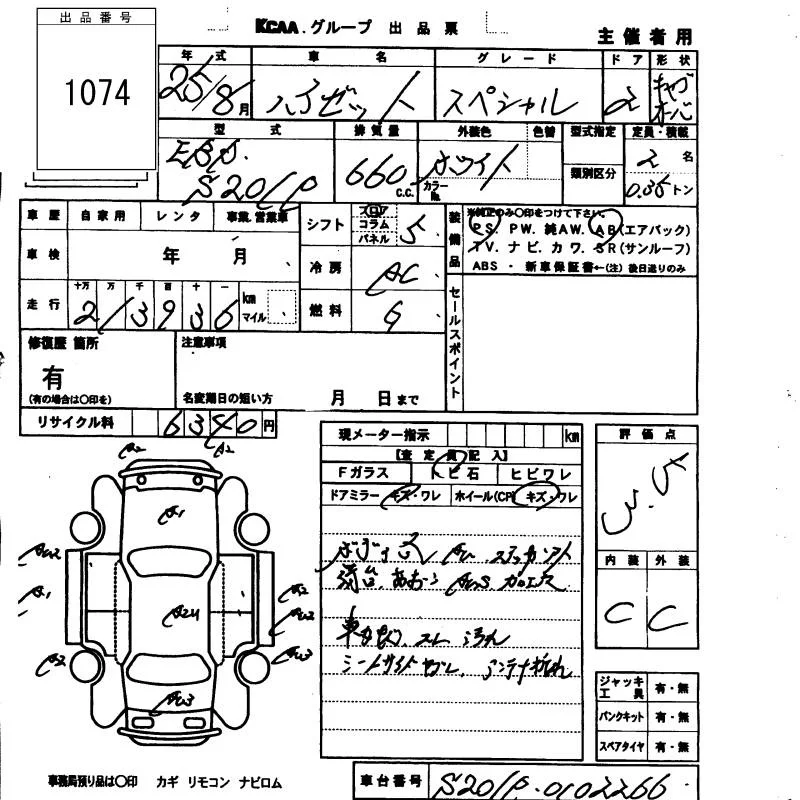 出品番号
1074
KCAA.グループ 出品票
主催者用
年式 車名 グレード ドア 形状
25/8月 ハイゼット スペシャル 2 キャブオーバ
型式 排気量 外装色 色替 型式指定 定員・積載
EBD. 660 C.C. ホワイト カラーNo. 類別区分 2名
S201P 0.35トン
車歴 自家用 レンタ 事業.営業車
シフト フロア コラム パネル 5
装備品
※純正のみ○印をつけて下さい。
PS. PW. 純AW. AB(エアバック)
TV. ナビ. カワ. SR(サンルーフ)
ABS ・ 新車保証書←(注) 後日送りのみ
車検 年 月
冷房 AC
走行 十万 万 千 百 十 一 km マイル
213936
燃料 G
セールスポイント
修復歴 箇所
有
(有の場合は○印を)
注意事項
名変期日の短い方 月 日まで
リサイクル料 6340円
現メーター指示 km
【査定員記入】
Fガラス トビ石 ヒビワレ
ドアミラー キズ・ワレ ホイール(CP) キズ・ワレ
評価点
3.5
内装 外装
C C
A2
A2
A1
AU2
A1
A2
A2
AU3
A2U
AU3
シートサイドヤブレ、アンテナ折れ
ジャッキ 工具 有・無
パンクキット 有・無
スペアタイヤ 有・無
事務局預り品は○印 カギ リモコン ナビロム
車台番号 S201P-0102266